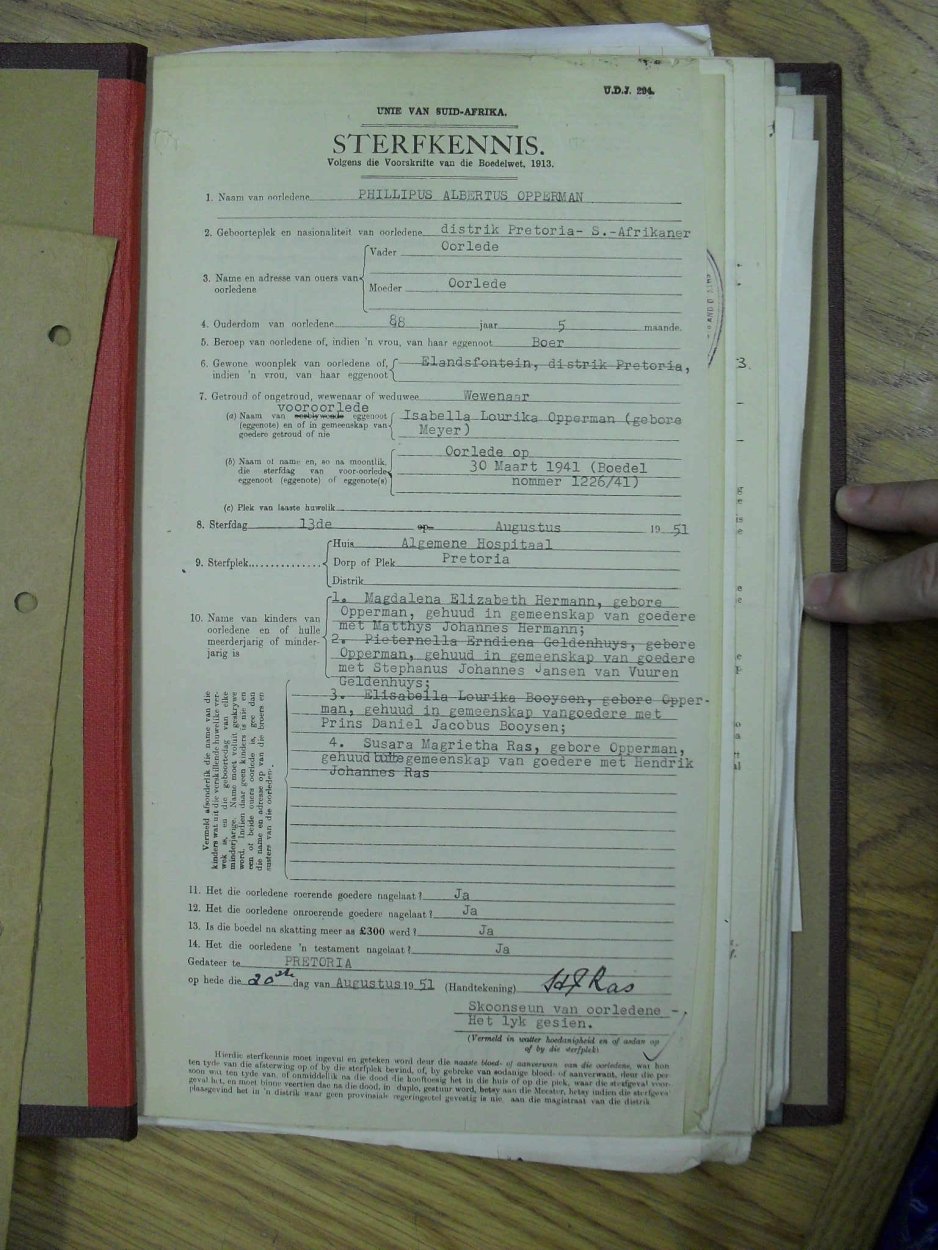 U.D.J. 294.
UNIE VAN SUID-AFRIKA.
STERFKENNIS.
Volgens die Voorskrifte van die Boedelwet, 1913.
1. Naam van oorledene PHILLIPUS ALBERTUS OPPERMAN
2. Geboorteplek en nasionaliteit van oorledene distrik Pretoria- S.-Afrikaner
3. Name en adresse van ouers van oorledene
Vader Oorlede
Moeder Oorlede
4. Ouderdom van oorledene 88 jaar 5 maande.
5. Beroep van oorledene of, indien 'n vrou, van haar eggenoot Boer
6. Gewone woonplek van oorledene of, Elandsfontein, distrik Pretoria,
indien 'n vrou, van haar eggenoot
7. Getroud of ongetroud, wewenaar of weduwee Wewenaar
vooroorlede
(a) Naam van eggenoot Isabella Lourika Opperman (gebore
(eggenote) en of in gemeenskap van Meyer)
goedere getroud of nie
(b) Naam of name en, so na moontlik, Oorlede op
die sterfdag van voor-oorlede 30 Maart 1941 (Boedel
eggenoot (eggenote) of eggenote(s) nommer 1226/41)
(c) Plek van laaste huwelik
8. Sterfdag 13de op Augustus 19 51
9. Sterfplek
Huis Algemene Hospitaal
Dorp of Plek Pretoria
Distrik
10. Name van kinders van
oorledene en of hulle
meerderjarig of minder-
jarig is
1. Magdalena Elizabeth Hermann, gebore
Opperman, gehuud in gemeenskap van goedere
met Matthys Johannes Hermann;
2. Pieternella Erndiena Geldenhuys, gebore
Opperman, gehuud in gemeenskap van goedere
met Stephanus Johannes Jansen van Vuuren
Geldenhuys;
3. Elisabella Lourika Booysen, gebore Opper-
man, gehuud in gemeenskap vangoedere met
Prins Daniel Jacobus Booysen;
4. Susara Magrietha Ras, gebore Opperman,
gehuud buite gemeenskap van goedere met Hendrik
Johannes Ras
Vermeld afsonderlik die name van die
kinders wat uit die verskillende huwelike ver-
wek is, en die geboortedag van elke
minderjarige. Name moet voluit geskrywe
word. Indien daar geen kinders is nie en
een of beide ouers oorlede is, gee dan
die name en adresse op van die broers en
susters van die oorledene.
11. Het die oorledene roerende goedere nagelaat? Ja
12. Het die oorledene onroerende goedere nagelaat? Ja
13. Is die boedel na skatting meer as £300 werd? Ja
14. Het die oorledene 'n testament nagelaat? Ja
Gedateer te PRETORIA
op hede die 20ste dag van Augustus 19 51 (Handtekening) HJ Ras
Skoonseun van oorledene -
Het lyk gesien.
(Vermeld in watter hoedanigheid en of aedan op
of by die sterfplek)
Hierdie sterfkennis moet ingevul en geteken word deur die naaste bloed- of aanverwant van die oorledene, wat hom
ten tyde van die afsterwing op of by die sterfplek bevind, of, by gebreke van sodanige bloed- of aanverwant, deur die per
soon wat ten tyde van, of onmiddellik na die dood die hooftoesig het in die huis of op die plek, waar die sterfgeval voor-
geval het, en moet binne veertien dae na die dood, in duplo, gestuur word, hetsy aan die Meester, hetsy indien die sterfgeva
plaasgevind het in 'n distrik waar geen provinsiale regeringsetel gevestig is nie, aan die magistraat van die distrik